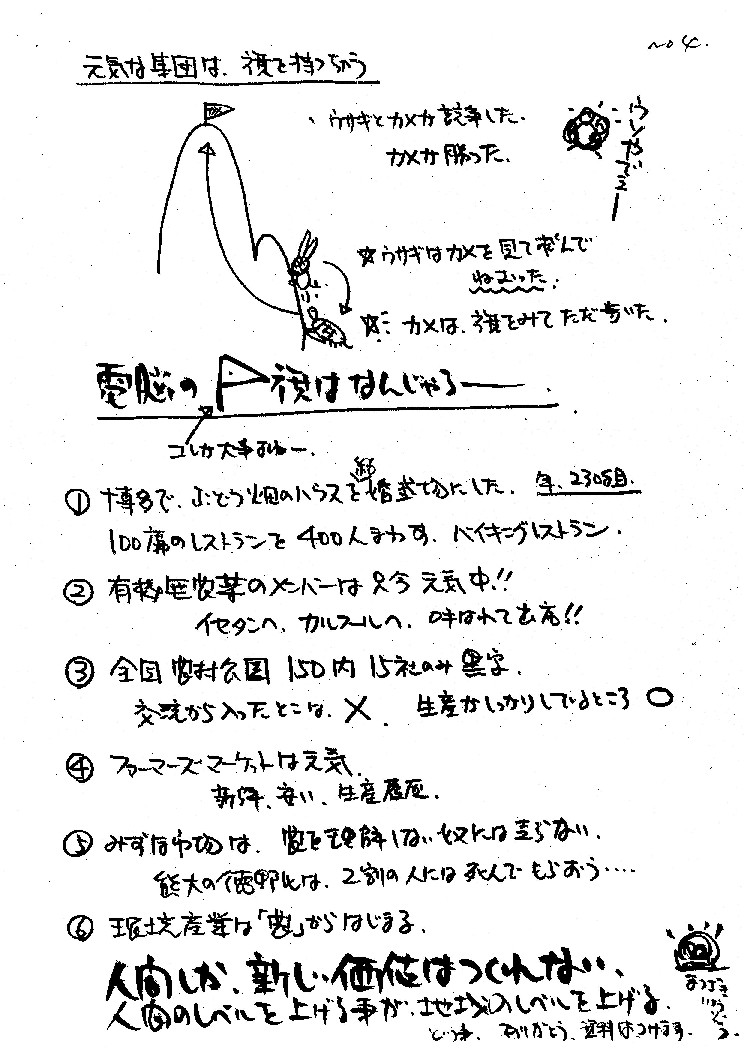 no 4.
元気な集団は、視を持つちゅう
、ウサギとカメが競争した。
カメが勝った。
ウンやでえー
☆ウサギはカメを見て遊んで
ねむった。
☆: カメは、視をみてただ歩いた。
電脳の P視はなんじゃろー
コレが大事よねー。
① 博多で、ぶどう畑のハウスを結婚式場にした。年、230組
100席のレストランを400人まわす、バイキングレストラン。
② 有機無農薬のメンバーは只今元気中!!
イセタンへ、カルフールへ、呼ばれて出店!!
③ 全国農村公園 150内 15社のみ黒字。
交流から入ったとこは、×、生産がしっかりしているところ ○
④ ファーマーズマーケットは元気。
新鮮、安い、生産履歴。
⑤ みずほ市場は、農を理解しない奴には売らない。
熊大の徳野氏は、2割の人には死んでもらおう‥‥
⑥ 環境産業は「農」からはじまる。
人間しか、新しい価値はつくれない、
人間のレベルを上げる事が、地域のレベルを上げる。
ありがとう、資料はつけます。